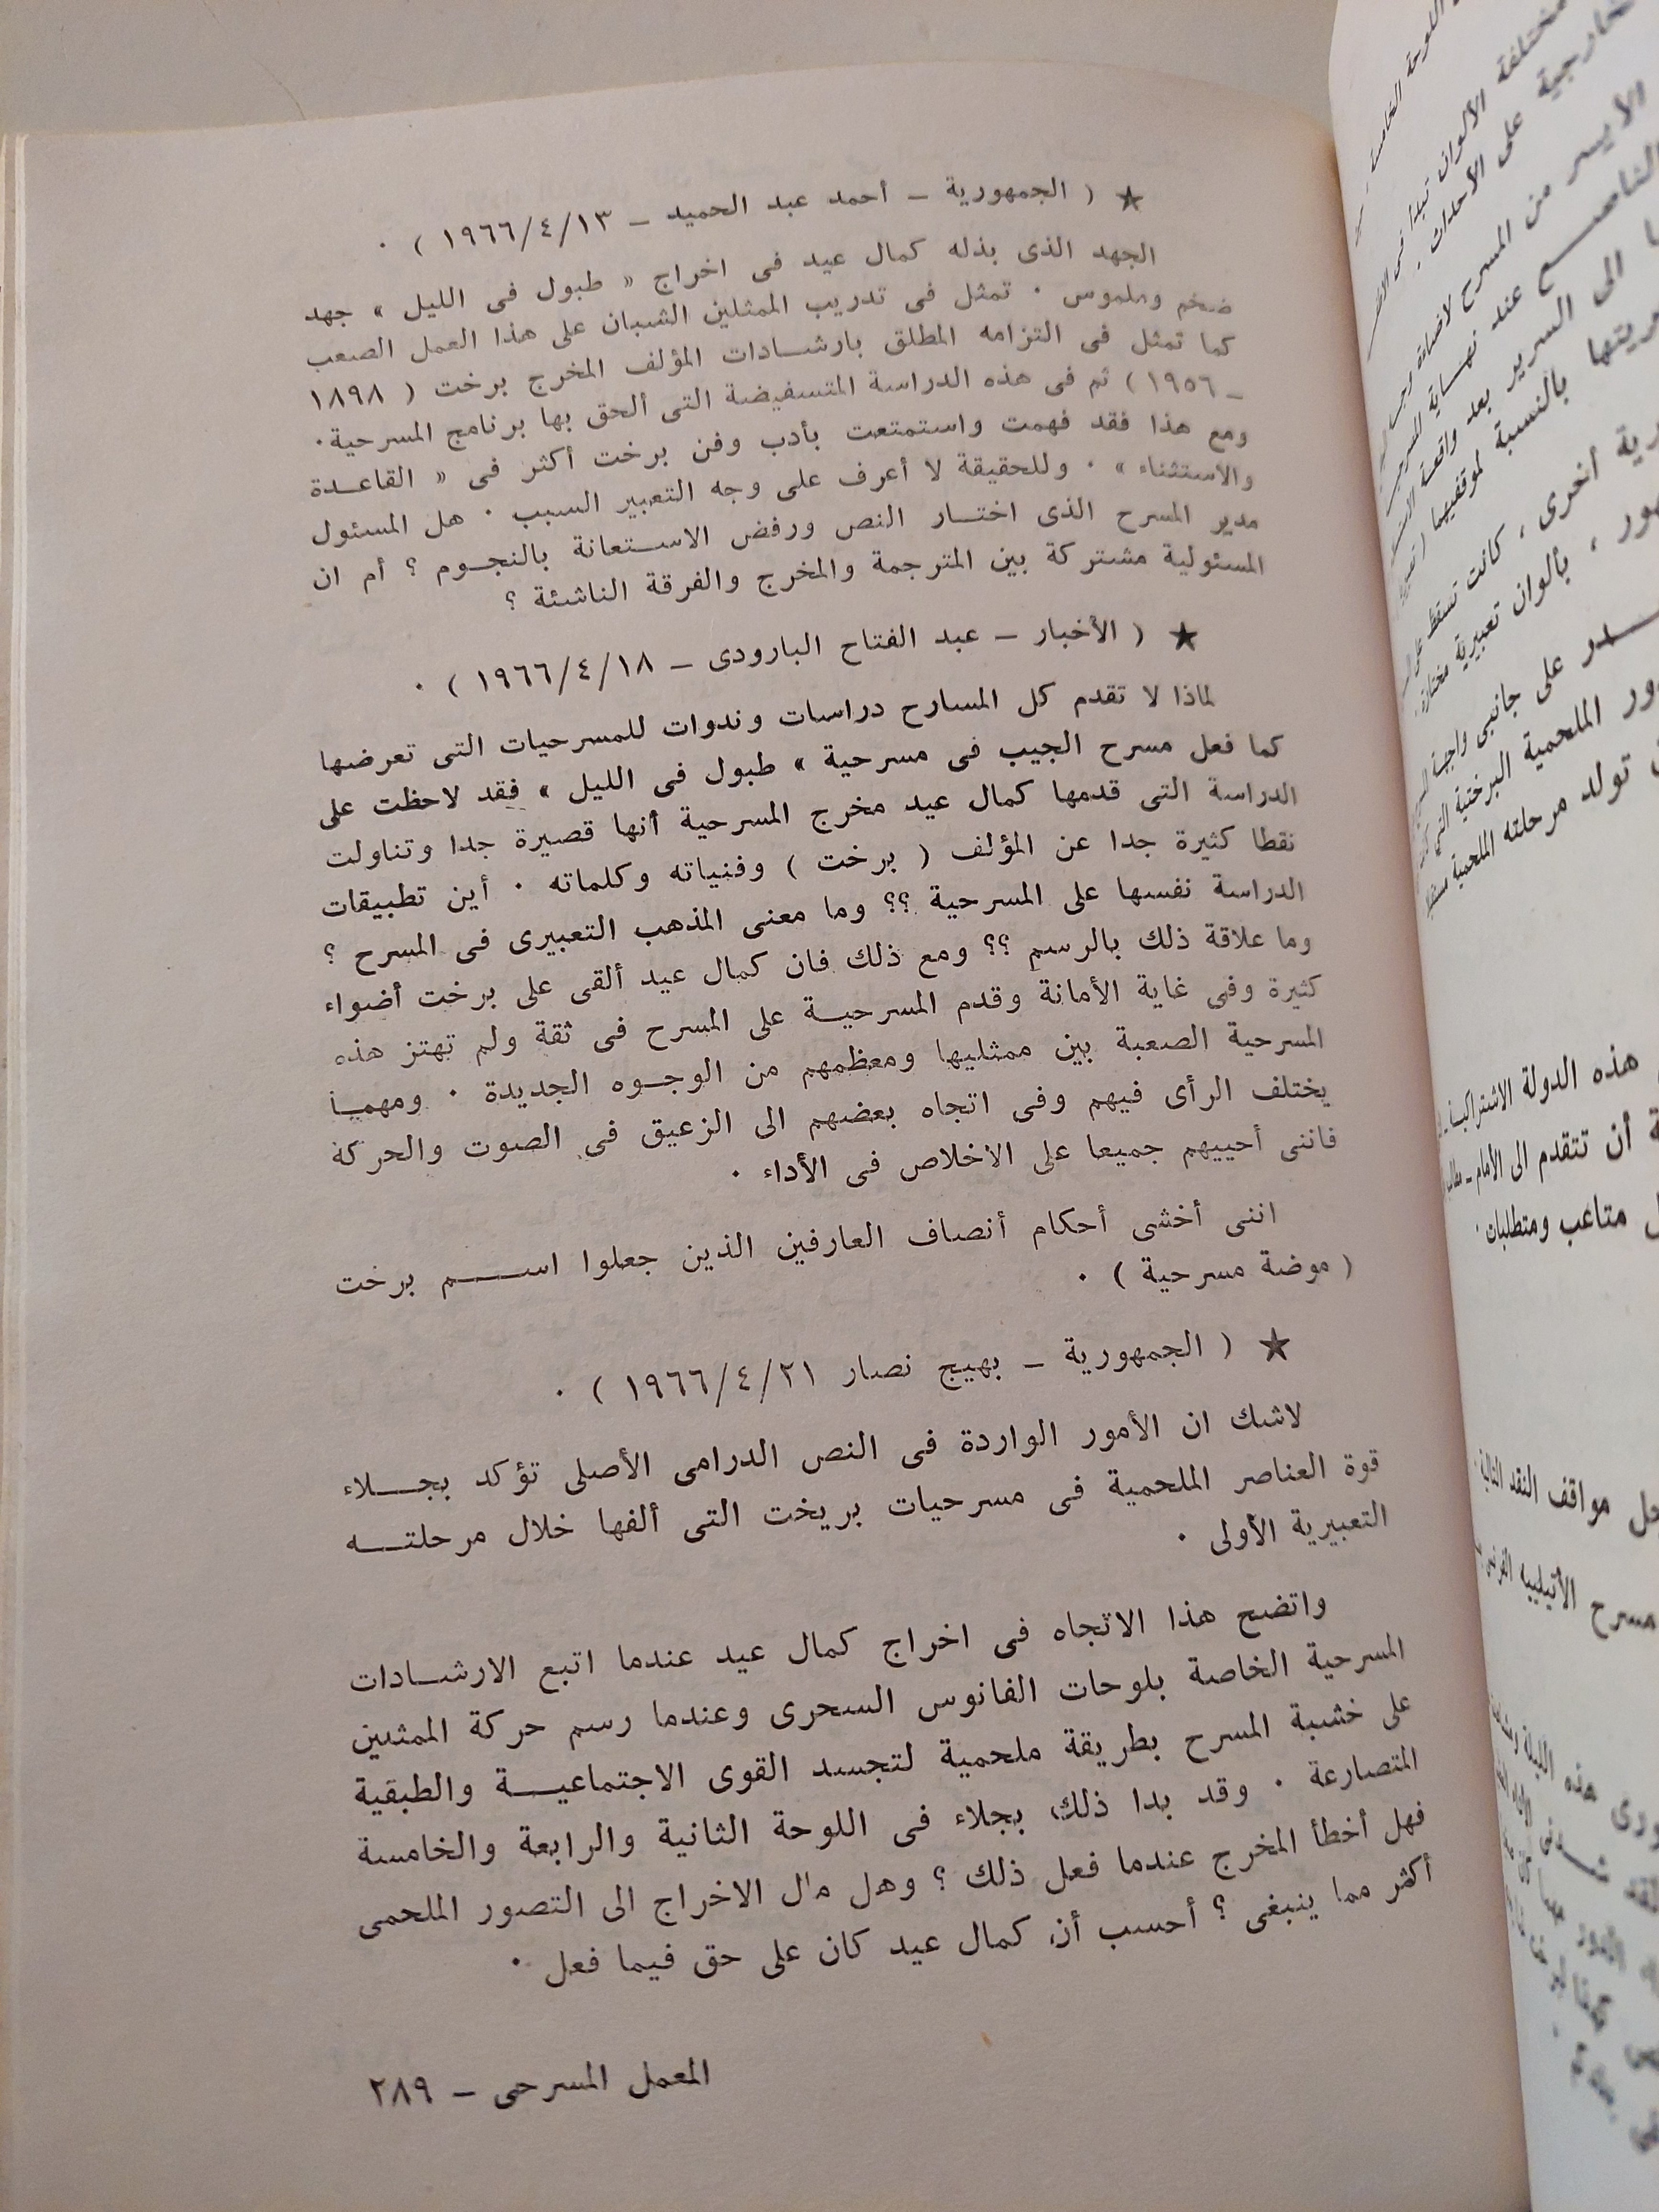 ★ ( الجمهورية – أحمد عبد الحميد – ١٩٦٦/٤/١٣ ) .
الجهد الذى بذله كمال عيد فى اخراج « طبول فى الليل » جهد
ضخم وملموس . تمثل فى تدريب الممثلين الشبان على هذا العمل الصعب
كما تمثل فى التزامه المطلق بارشادات المؤلف المخرج برخت ( ١٨٩٨
– ١٩٥٦ ) ثم فى هذه الدراسة المتسفيضة التى ألحق بها برنامج المسرحية .
ومع هذا فقد فهمت واستمتعت بأدب وفن برخت أكثر فى « القاعدة
والاستثناء » . وللحقيقة لا أعرف على وجه التعبير السبب . هل المسئول
مدير المسرح الذى اختار النص ورفض الاستعانة بالنجوم ؟ أم ان
المسئولية مشتركة بين المترجمة والمخرج والفرقة الناشئة ؟
★ ( الأخبار – عبد الفتاح البارودى – ١٩٦٦/٤/١٨ ) .
لماذا لا تقدم كل المسارح دراسات وندوات للمسرحيات التى تعرضها
كما فعل مسرح الجيب فى مسرحية » طبول فى الليل » فقد لاحظت على
الدراسة التى قدمها كمال عيد مخرج المسرحية أنها قصيرة جدا وتناولت
نقطا كثيرة جدا عن المؤلف ( برخت ) وفنياته وكلماته . أين تطبيقات
الدراسة نفسها على المسرحية ؟؟ وما معنى المذهب التعبيرى فى المسرح ؟
وما علاقة ذلك بالرسم ؟؟ ومع ذلك فان كمال عيد ألقى على برخت أضواء
كثيرة وفى غاية الأمانة وقدم المسرحية على المسرح فى ثقة ولم تهتز هذه
المسرحية الصعبة بين ممثليها ومعظمهم من الوجوه الجديدة . ومهما
يختلف الرأى فيهم وفى اتجاه بعضهم الى الزعيق فى الصوت والحركة
فاننى أحييهم جميعا على الاخلاص فى الأداء .
اننى أخشى أحكام أنصاف العارفين الذين جعلوا اسم برخت
( موضة مسرحية ) .
★ ( الجمهورية – بهيج نصار ١٩٦٦/٤/٢١ ) .
لاشك ان الأمور الواردة فى النص الدرامى الأصلى تؤكد بجلاء
قوة العناصر الملحمية فى مسرحيات بريخت التى ألفها خلال مرحلته
التعبيرية الأولى .
واتضح هذا الاتجاه فى اخراج كمال عيد عندما اتبع الارشادات
المسرحية الخاصة بلوحات الفانوس السحرى وعندما رسم حركة الممثلين
على خشبة المسرح بطريقة ملحمية لتجسد القوى الاجتماعية والطبقية
المتصارعة . وقد بدا ذلك بجلاء فى اللوحة الثانية والرابعة والخامسة
فهل أخطأ المخرج عندما فعل ذلك ؟ وهل مال الاخراج الى التصور الملحمى
أكثر مما ينبغى ؟ أحسب أن كمال عيد كان على حق فيما فعل .
المعمل المسرحى – ٢٨٩
هذه الدولة الاشتراكية
أن تتقدم الى الأمام
متاعب ومتطلبات .
مواقف النقد التالية